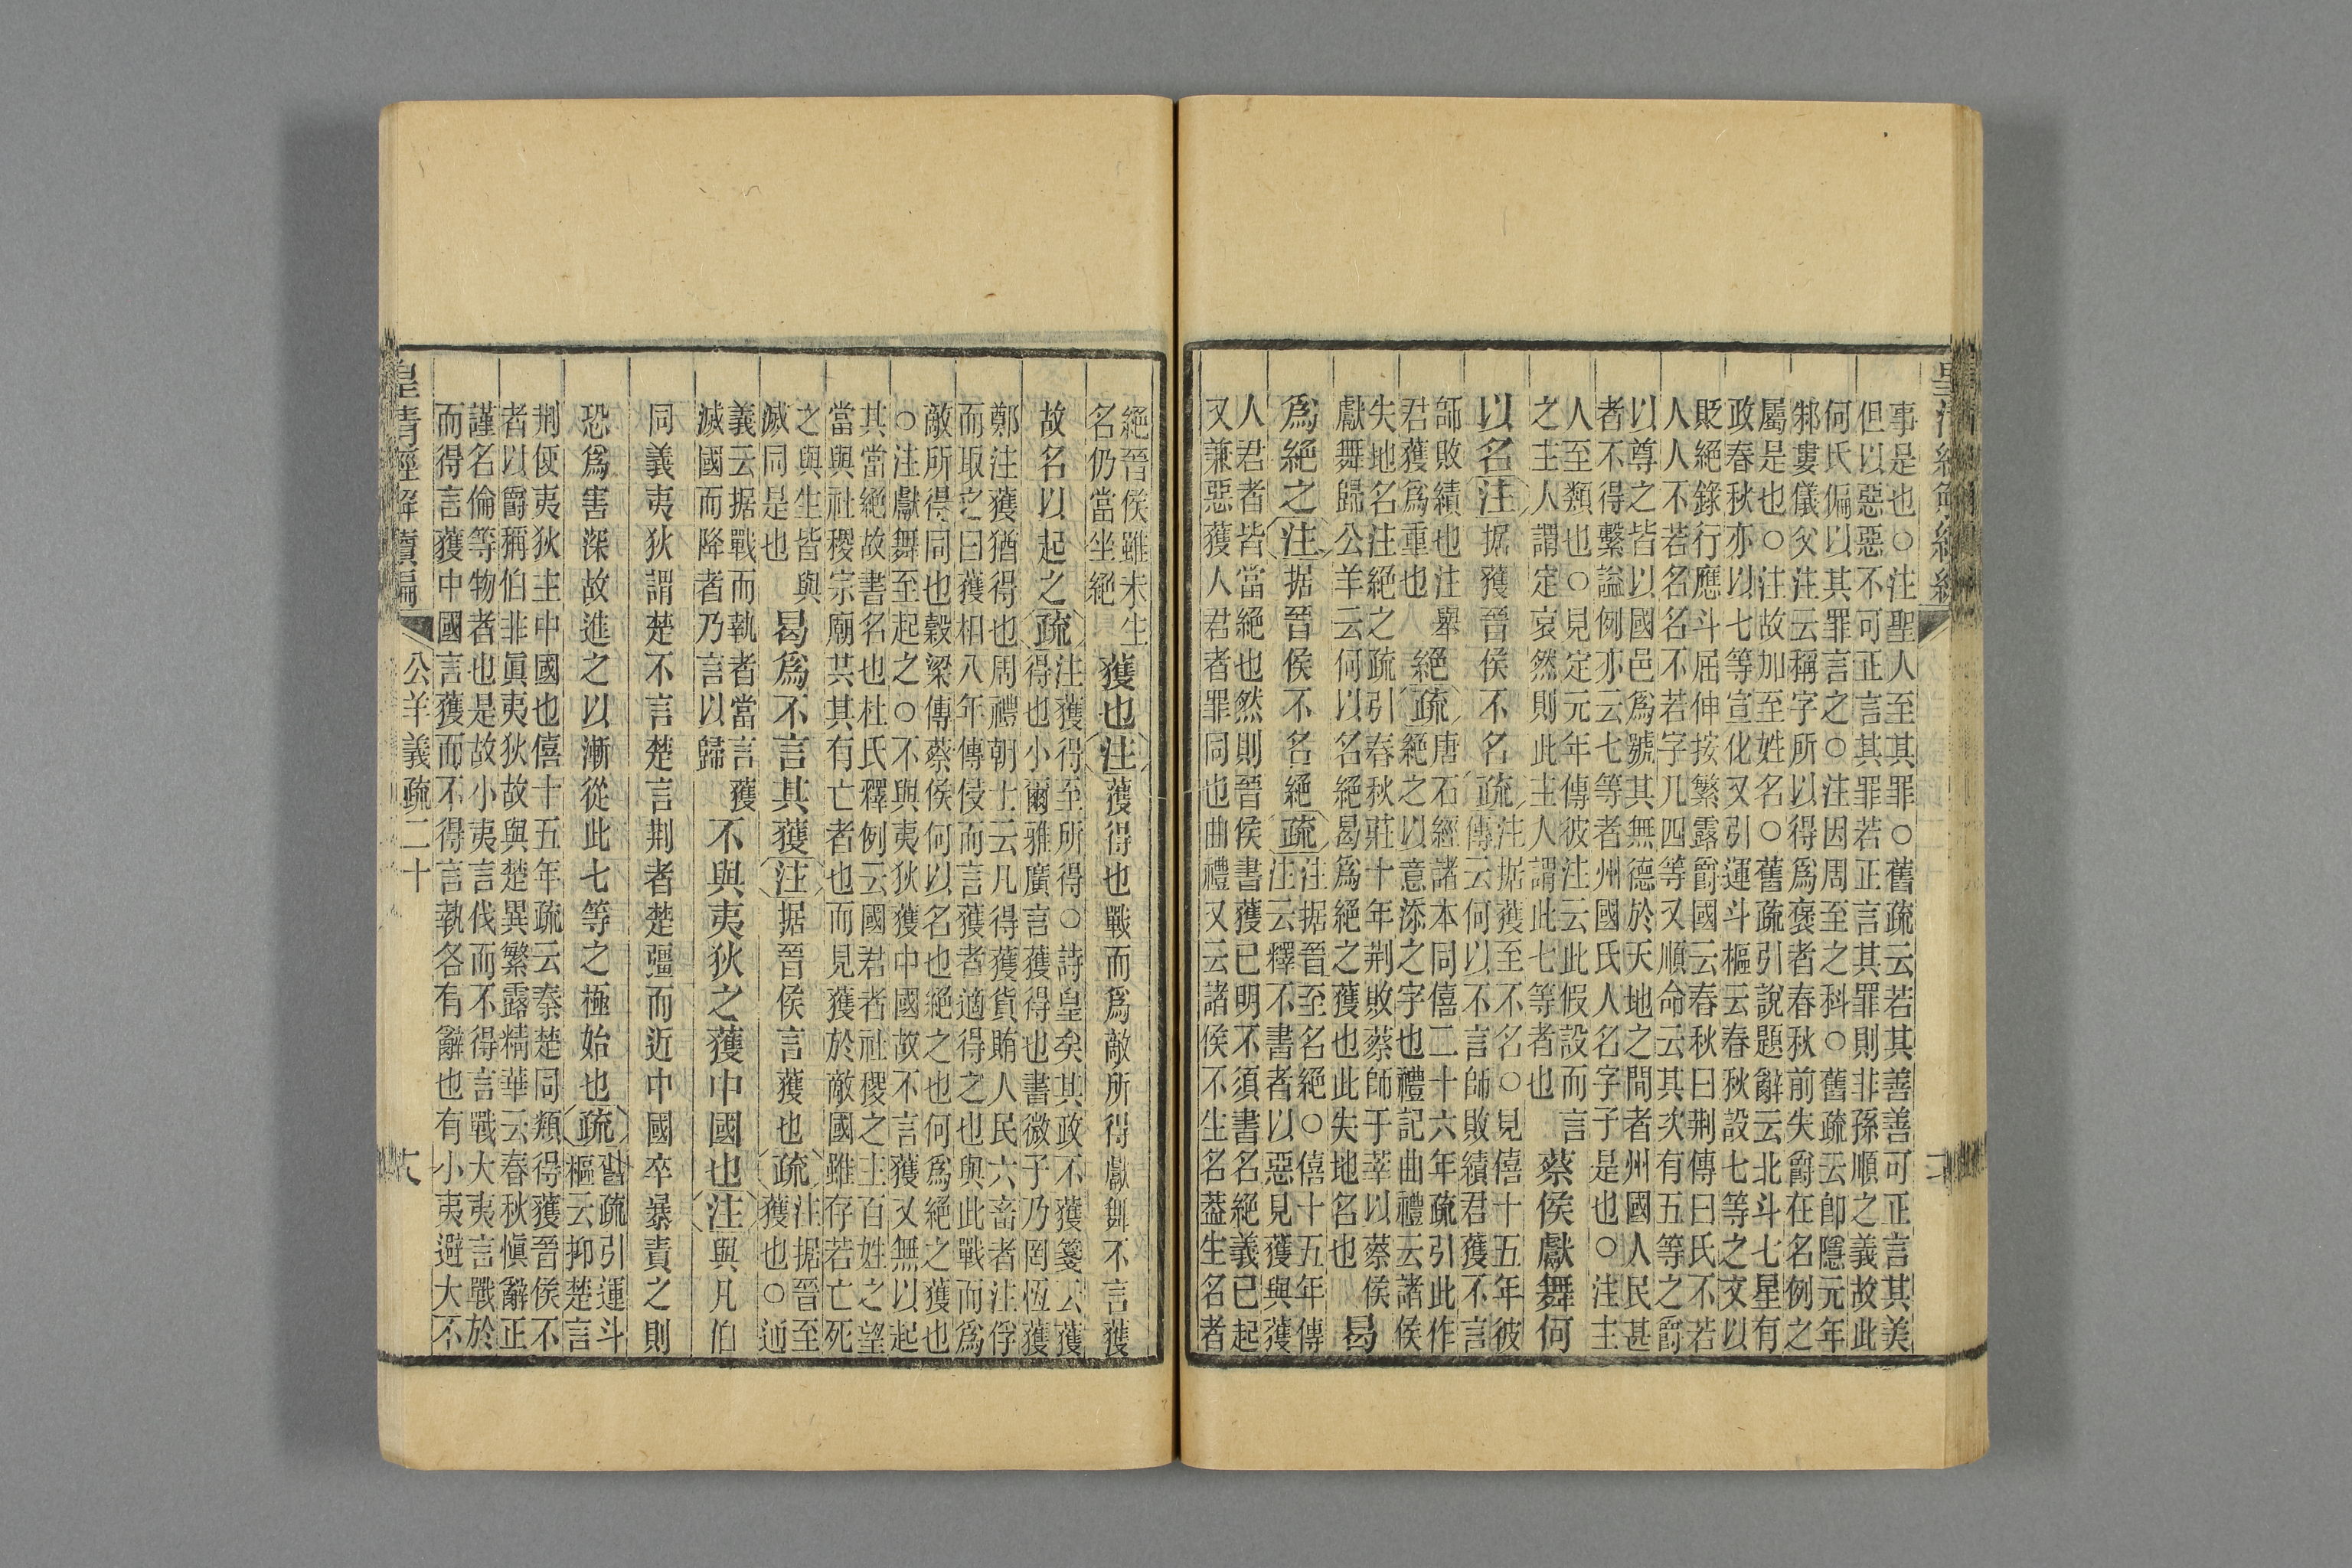 皇清經解續編
事是也○注聖人至其罪○舊疏云若其善善可正言其美
但以惡惡不可正言其罪若正言其罪則非孫順之義故此
何氏偏以其罪言之○注因周至之科○舊疏云卽隱元年
邾婁儀父注云稱字所以得爲褒者春秋前失爵在名例之
屬是也○注故加至姓名○舊疏引說題辭云北斗七星有
政春秋亦以七等宣化又引運斗樞云春秋設七等之文以
貶絕錄行應斗屈伸按繁露爵國云春秋曰荆傳曰氏不若
人人不若名名不若字凡四等又順命云其次有五等之爵
以尊之皆以國邑爲號其無德於天地之間者州國人民甚
者不得繫諡例亦云七等者州國氏人名字子是也○注主
人至類也○見定元年傳彼注云此假設而言
之主人謂定哀然則此主人謂此七等者也
蔡侯獻舞何
以名注据獲晉侯不名疏
注据獲至不名○見僖十五年彼
傳云何以不言師敗績君獲不言
師敗績也注舉
君獲爲重也
絕疏
唐石經諸本同僖二十六年疏引此作
絕之以意添之字也禮記曲禮云諸侯
失地名注絕之疏引春秋莊十年荆敗蔡師于莘以蔡侯
獻舞歸公羊云何以名絕曷爲絕之獲也此失地名也
曷
爲絕之注据晉侯不名絕疏
注据晉至名絕○僖十五年傳
注云釋不書者以惡見獲與獲
人君者皆當絕也然則晉侯書獲已明不須書名絕義已起
又兼惡獲人君者罪同也曲禮又云諸侯不生名蓋生名者
絕晉侯雖未生
名仍當坐絕
獲也注獲得也戰而爲敵所得獻舞不言獲
故名以起之疏
注獲得至所得○詩皇矣其政不獲箋云獲
得也小爾雅廣言獲得也書微子乃罔恆獲
鄭注獲猶得也周禮朝士云凡得獲貨賄人民六畜者注俘
而取之曰獲相八年傳侵而言獲者適得之也與此戰而爲
敵所得同也穀梁傳蔡侯何以名也絕之也何爲絕之獲也
○注獻舞至起之○不與夷狄獲中國故不言獲又無以起
其當絕故書名也杜氏釋例云國君者社稷之主百姓之望
當與社稷宗廟共其有亡者也而見獲於敵國雖存若亡死
之與生皆與
滅同是也
曷爲不言其獲注据晉侯言獲也疏
注据晉至
獲也○通
義云据戰而執者當言獲
滅國而降者乃言以歸
不與夷狄之獲中國也注與凡伯
同義夷狄謂楚不言楚言荆者楚彊而近中國卒暴責之則
恐爲害深故進之以漸從此七等之極始也疏
舊疏引運斗
樞云抑楚言
荆便夷狄主中國也僖十五年疏云秦楚同類得獲晉侯不
者以爵稱伯非眞夷狄故與楚異繁露精華云春秋愼辭正
謹名倫等物者也是故小夷言伐而不得言戰大夷言戰於
而得言獲中國言獲而不得言執各有辭也有小夷避大不
皇清經解續編
公羊義疏二十